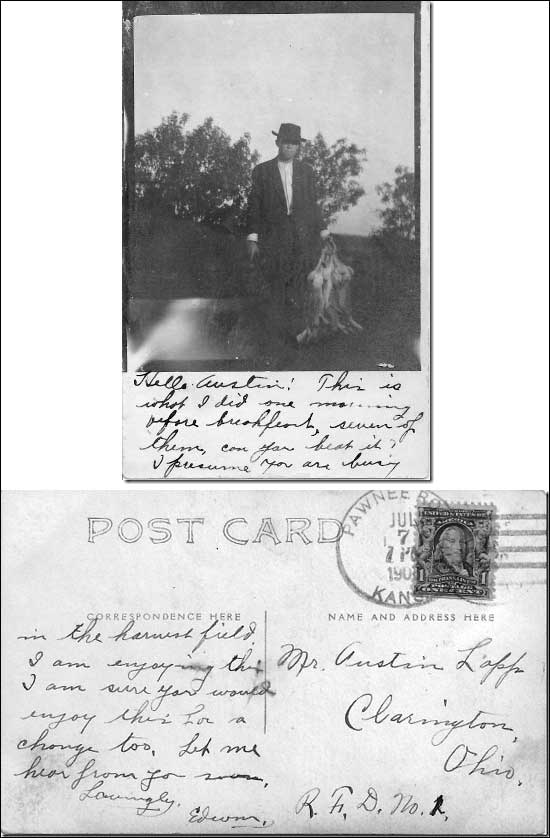 Hello Austin! This is
what I did one morning
before breakfast, seven of
them, can you beat it?
I presume you are busy
POST CARD
PAWNEE
JUL
7
7 PM
190
KANS
1
CORRESPONDENCE HERE
NAME AND ADDRESS HERE
in the harvest field.
I am enjoying this
I am sure you would
enjoy this for a
change too. Let me
hear from yo soon,
Lovingly,
Edwin.
Mr. Austin Lapp
Clarington,
Ohio.
R. F. D. No. 1.